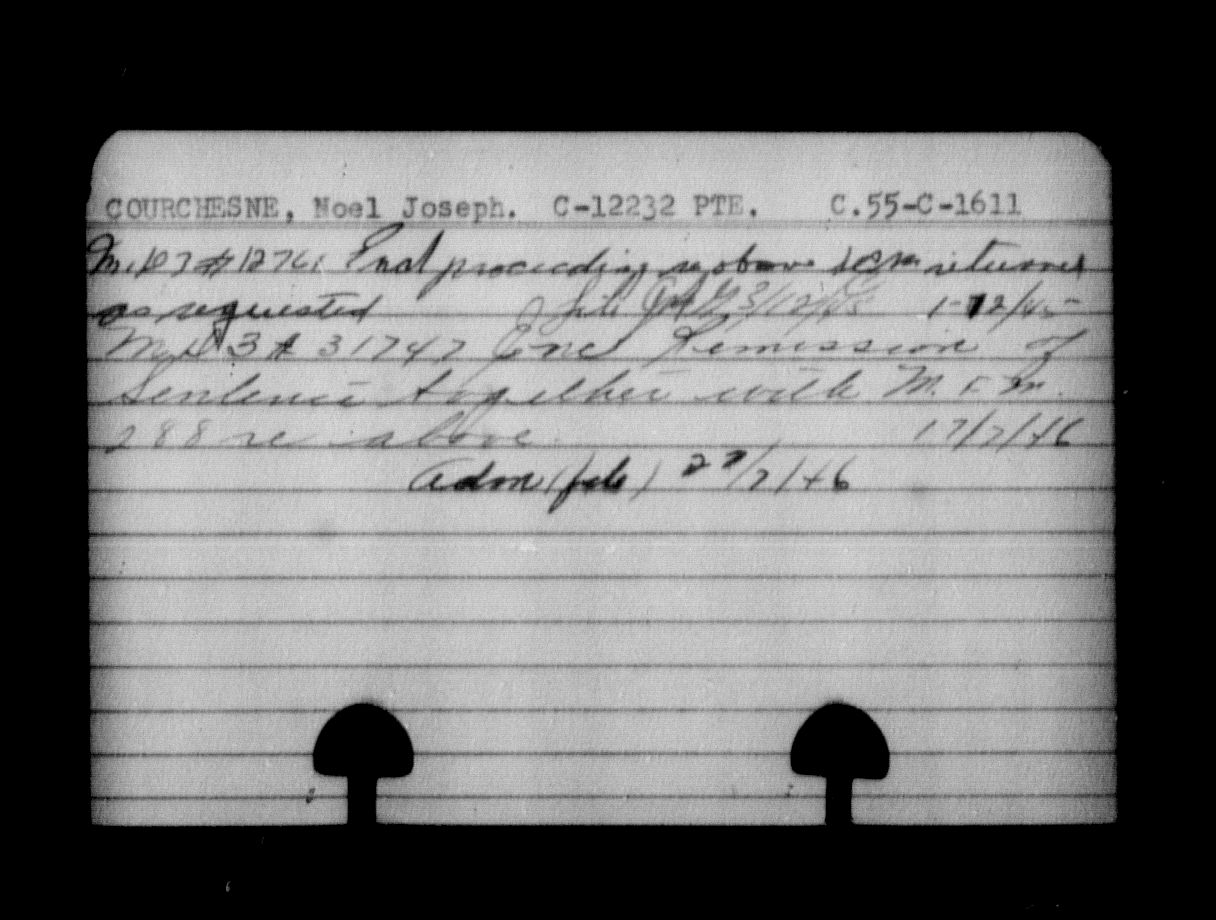 COURCHESNE, Noel Joseph. C-12232 PTE. C.55-C-1611
Encl proceeding re above returned
as requested 3/12/45 1-12/45
M.D. 3 # 31747 Enc Remission of
Sentence together with M.F.M.
288 re above. 17/7/46
Adm (file) 27/7/46